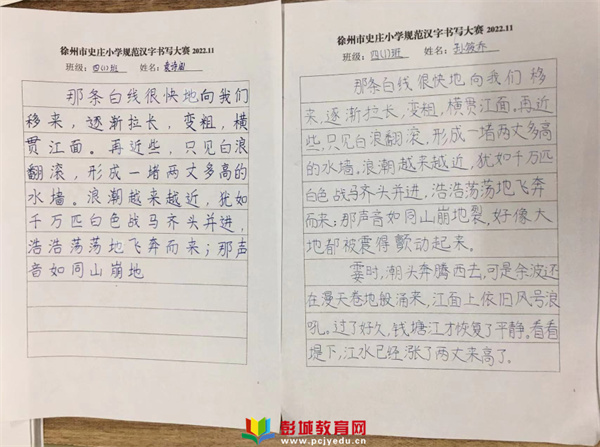 徐州市史庄小学规范汉字书写大赛 2022.11
班级：四(1)班 姓名：
那条白线很快地向我们
移来，逐渐拉长，变粗，横
贯江面。再近些，只见白浪
翻滚，形成一堵两丈多高的
水墙。浪潮越来越近，犹如
千万匹白色战马齐头并进，
浩浩荡荡地飞奔而来；那声
音如同山崩地
徐州市史庄小学规范汉字书写大赛 2022.11
班级：四(1)班 姓名：
那条白线很快地向我们 移
来，逐渐拉长，变粗，横贯江面。再近
些，只见白浪翻滚，形成一堵两丈多高
的水墙。浪潮越来越近，犹如千万匹
白色战马齐头并进，浩浩荡荡地飞奔
而来；那声音如同山崩地裂，好像大
地都被震得颤动起来。
霎时，潮头奔腾西去，可是余波还
在漫天卷地般涌来，江面上依旧风号浪
吼。过了好久，钱塘江才恢复了平静。看看
堤下，江水已经涨了两丈来高了。
彭城教育网
www.pcjyedu.cn